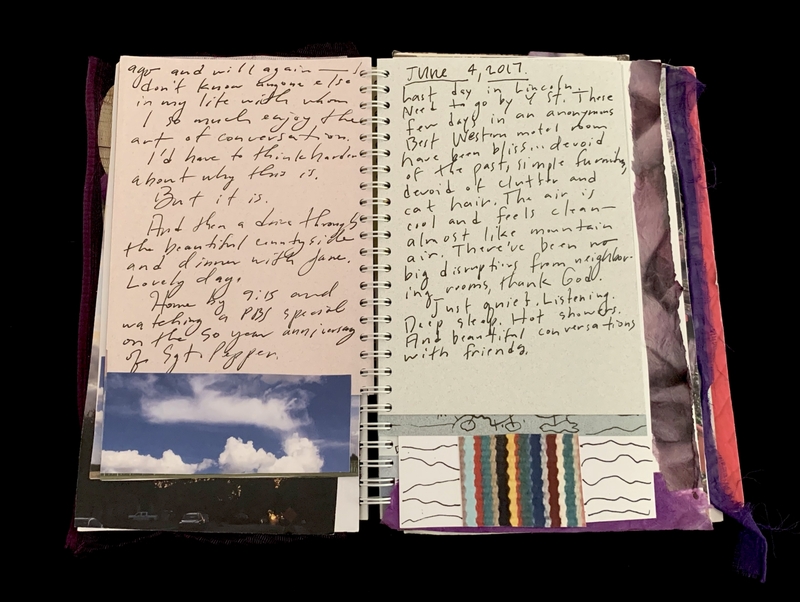 ago and will again — I
don't know anyone else
in my life with whom
I so much enjoy the
art of conversation.
I'd have to think harder
about why this is.
But it is.
And then a drive through
the beautiful countryside
and dinner with Jane.
Lovely day.
Home by 9:15 and
watching a PBS special
on the 50 year anniversary
of Sgt. Pepper.
June 4, 2017.
Last day in Lincoln—
Need to go by Y St. These
few days in an anonymous
Best Western motel room
have been bliss... devoid
of the past, simple furnishing,
devoid of clutter and
cat hair. The air is
cool and feels clean—
almost like mountain
air. There've been no
big disruptions from neighbor-
ing rooms, thank God.
Just quiet. Listening.
Deep sleep. Hot showers.
And beautiful conversations
with friends.